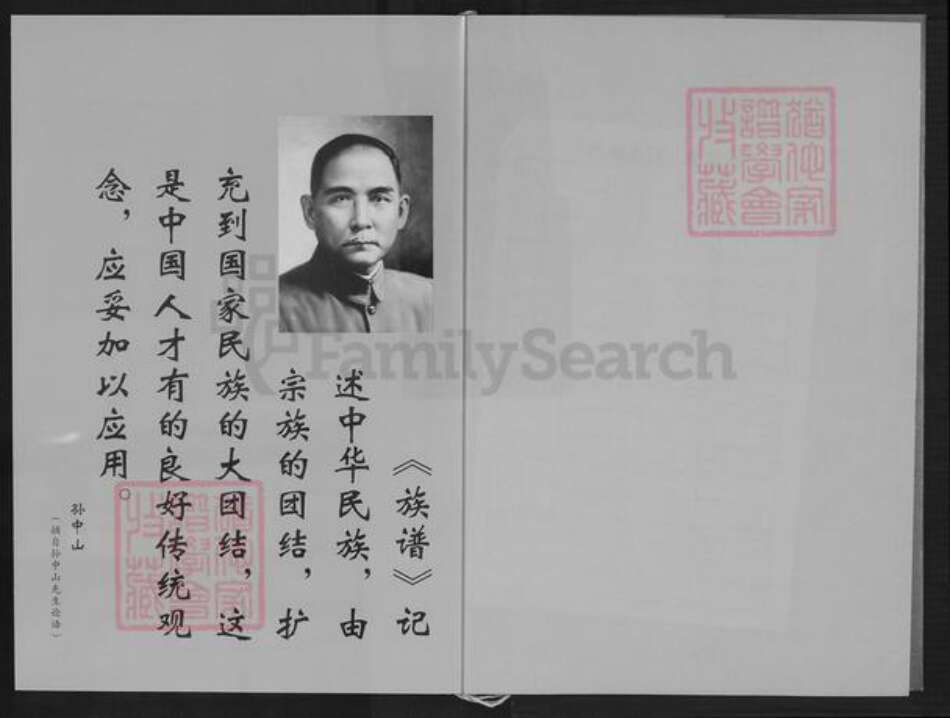 《族谱》记
述中华民族，由
宗族的团结，扩
充到国家民族的大团结，这
是中国人才有的良好传统观
念，应妥加以应用。
孙中山
（摘自孙中山先生论语）
FamilySearch
谱学会
收藏